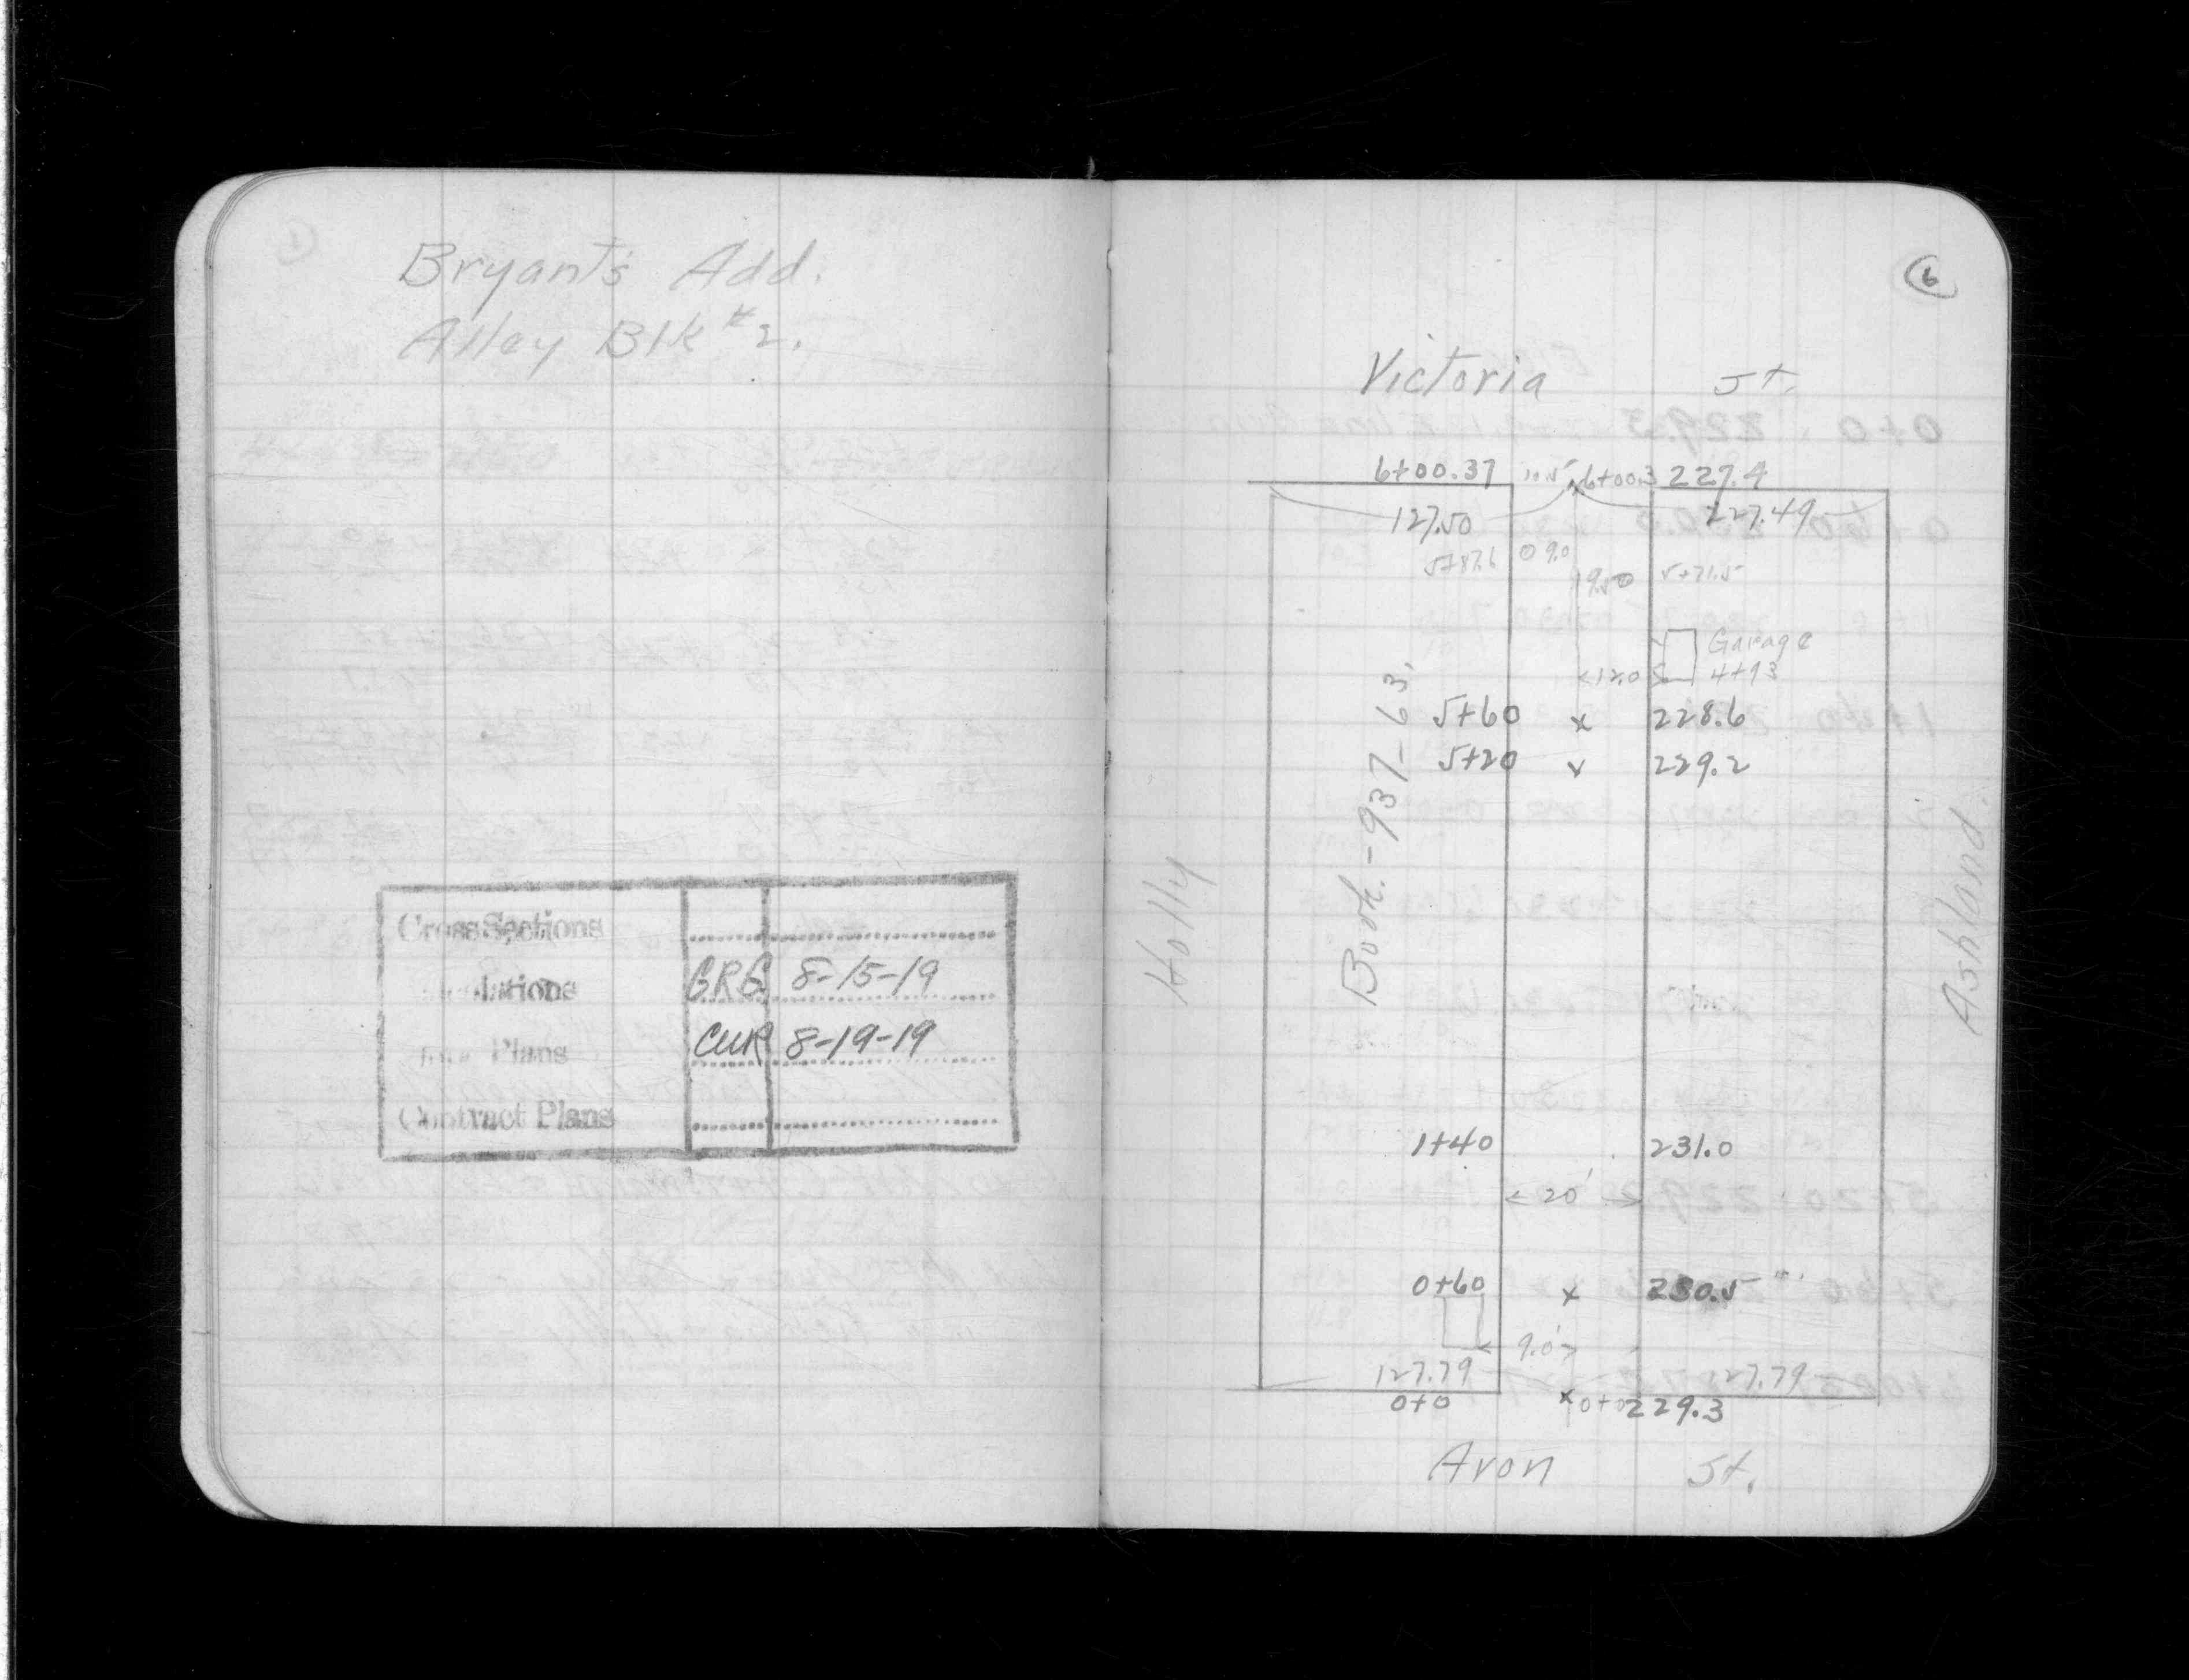 Bryant's Add.
Alley Blk #2.
Cross Sections
GRG 8-15-19
Plans CWR 8-19-19
Contract Plans
6
Victoria St.
6+00.37 10.5 6+00.3 227.4
127.50 127.49
5+87.6 9.0
9.5 5+71.5
Garage
12.0 4+93
5+60 x 228.6
5+20 x 229.2
Book-937-63.
Holly
Ashland.
1+40 231.0
20'
0+60 x 230.5
9.0'
127.79 127.79
0+0 x 0+0 229.3
Avon St.